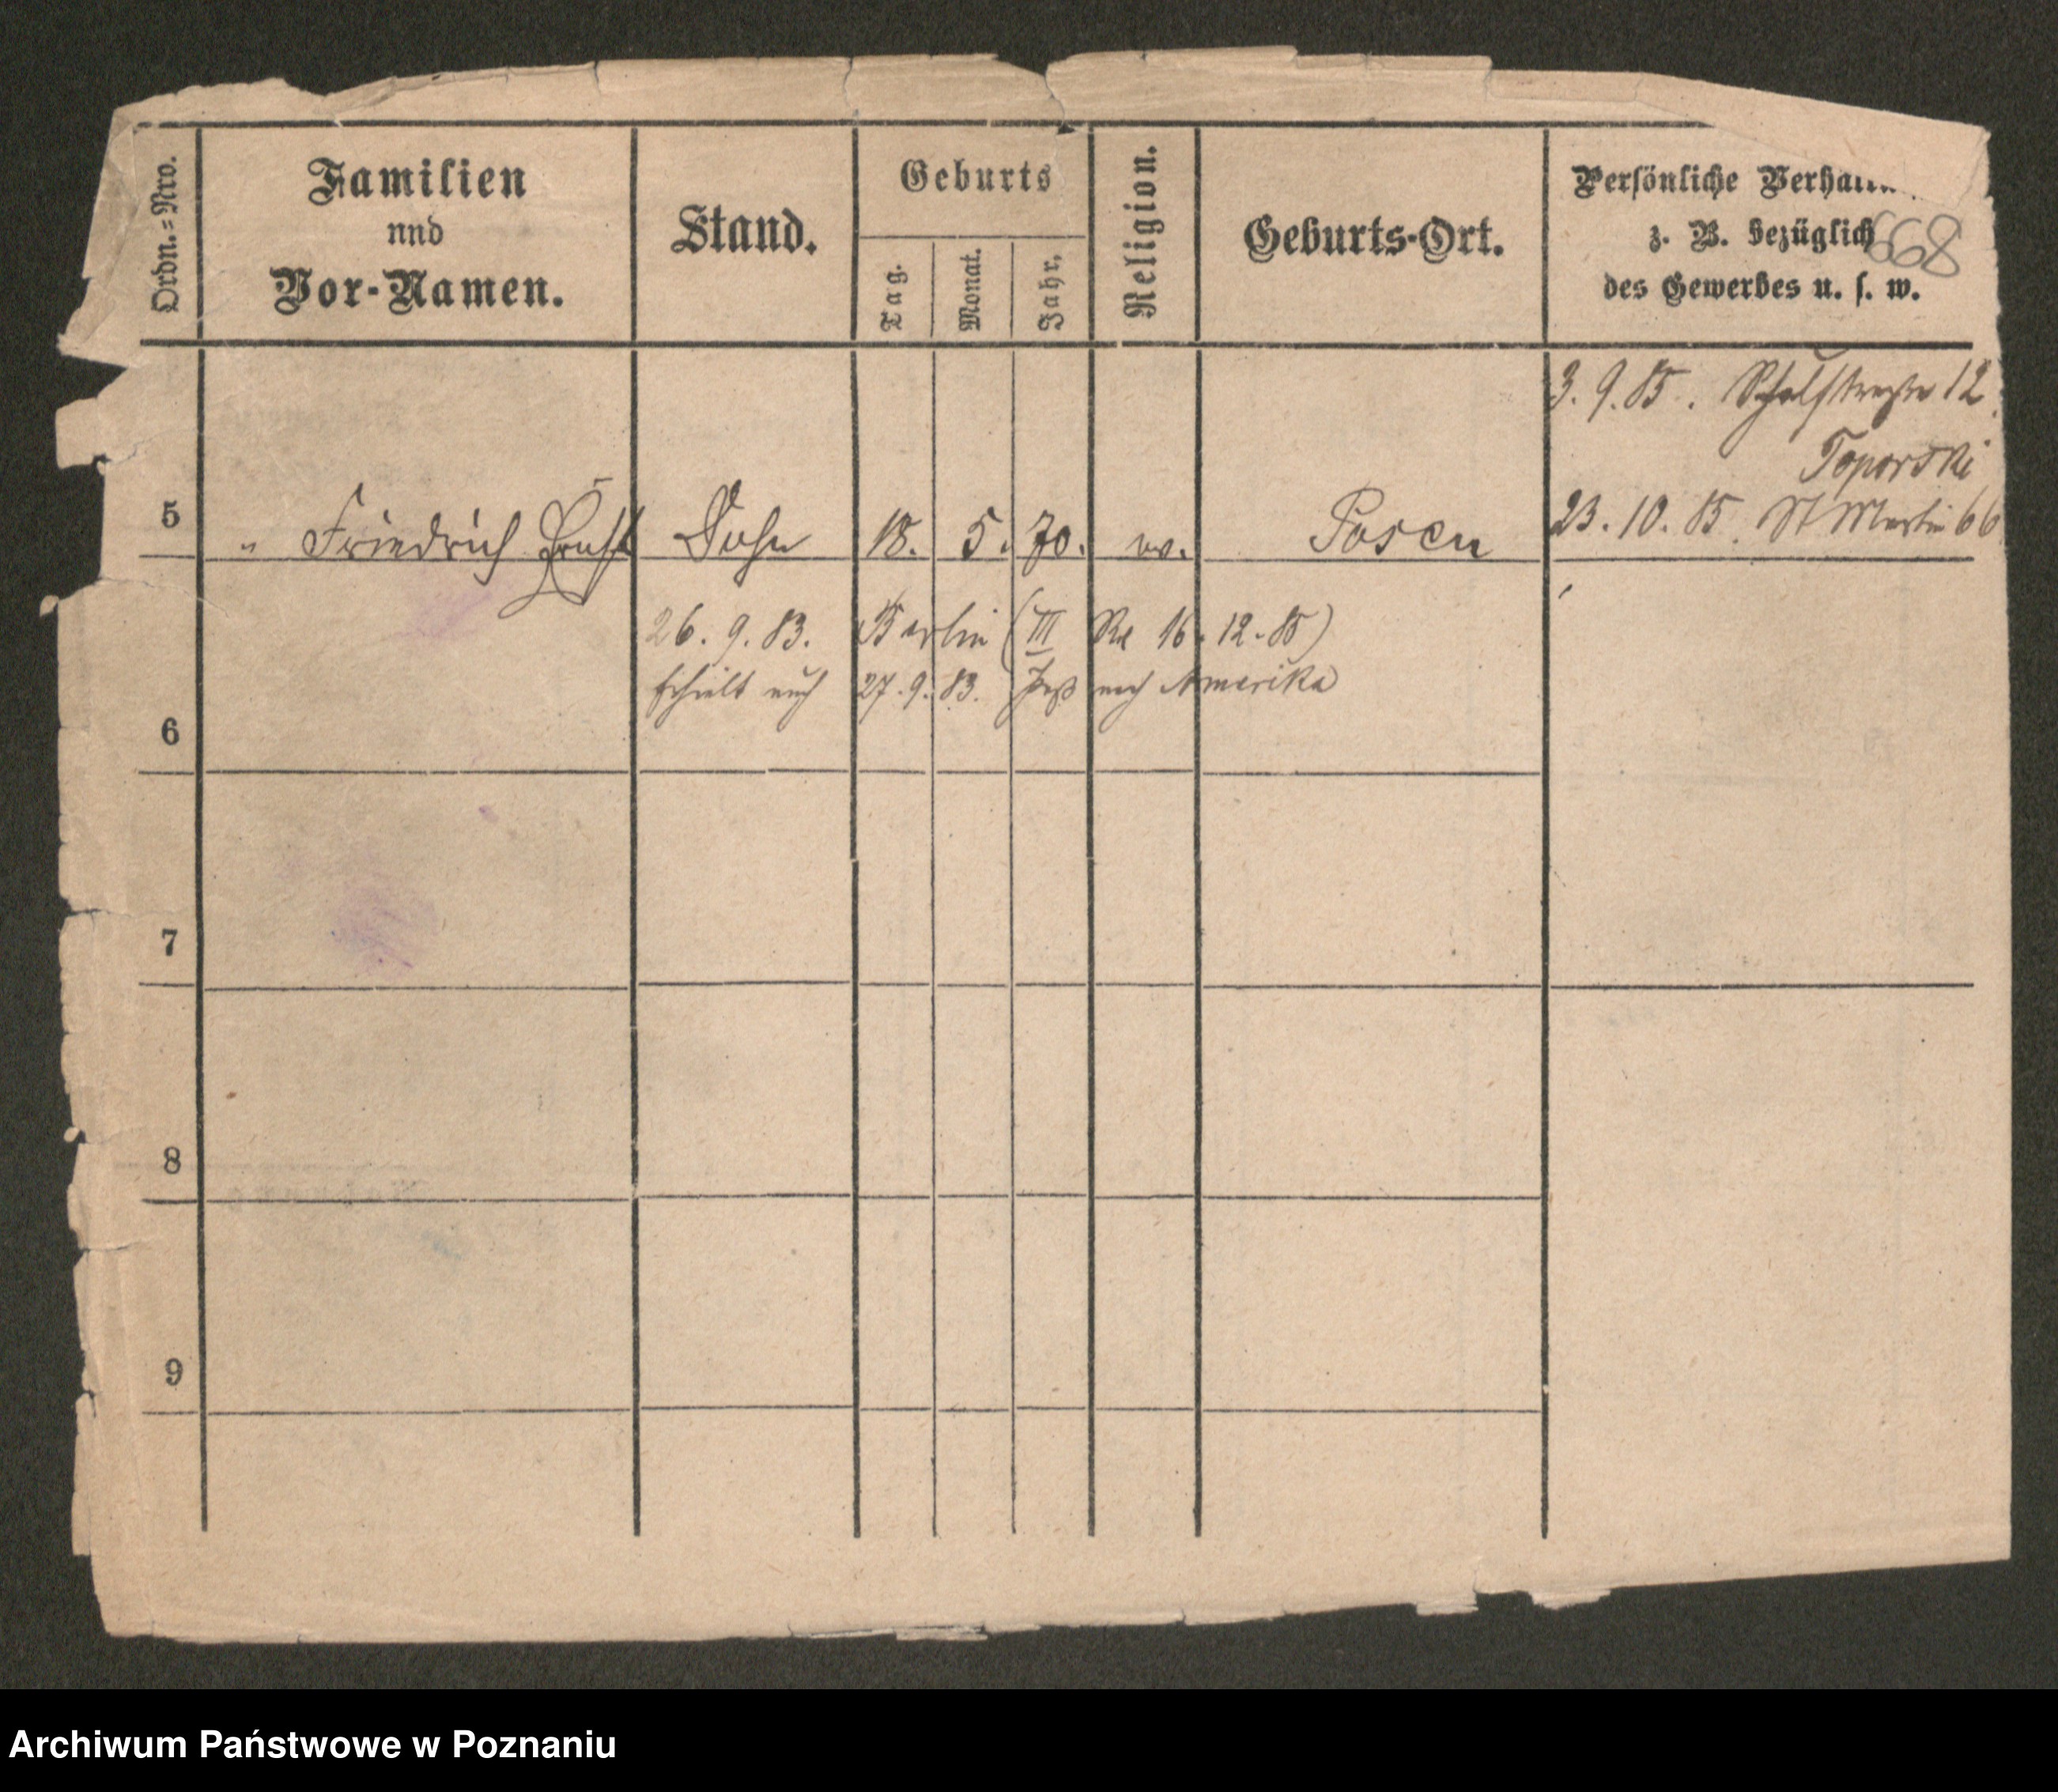 Ordn.=Nro.
Familien
und
Vor-Namen.
Stand.
Geburts
Tag.
Monat.
Jahr.
Religion.
Geburts-Ort.
Persönliche
z. B. bezüglich
des Gewerbes u. s. w.
668
3. 9. 85. 12
Toporski
23. 10. 85. St Martin 66
5 " Friedrich Ernst Sohn 18. 5. 70. ev. Posen
26. 9. 83. Berlin (III 16. 12. 85)
27. 9. 83. Paß nach Amerika
6
7
8
9
Archiwum Państwowe w Poznaniu